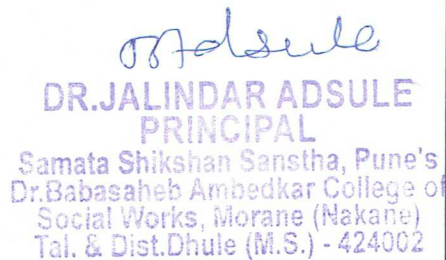 Adsule
DR.JALINDAR ADSULE
PRINCIPAL
Samata Shikshan Sanstha, Pune's
Dr.Babasaheb Ambedkar College of
Social Works, Morane (Nakane)
Tal. & Dist.Dhule (M.S.) - 424002